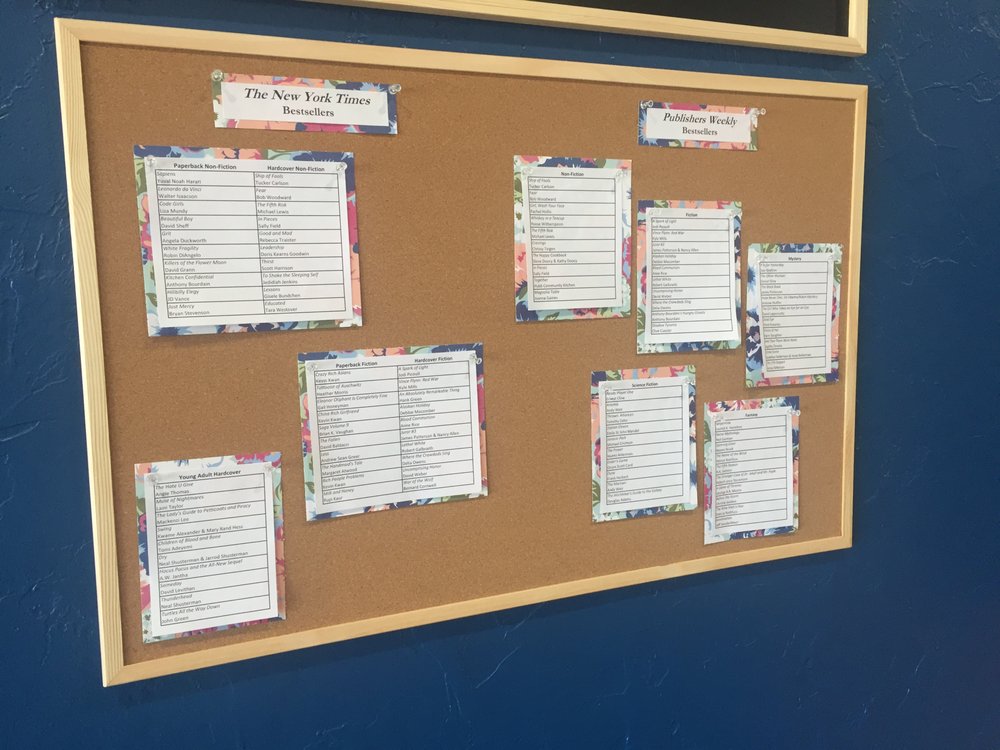 The New York Times
Bestsellers
Paperback Non-Fiction
Hardcover Non-Fiction
Sapiens
Yuval Noah Harari
Leonardo da Vinci
Walter Isaacson
Code Girls
Liza Mundy
Beautiful Boy
David Sheff
Grit
Angela Duckworth
White Fragility
Robin DiAngelo
Killers of the Flower Moon
David Grann
Kitchen Confidential
Anthony Bourdain
Hillbilly Elegy
JD Vance
Just Mercy
Bryan Stevenson
Ship of Fools
Tucker Carlson
Fear
Bob Woodward
The Fifth Risk
Michael Lewis
In Pieces
Sally Field
Good and Mad
Rebecca Traister
Leadership
Doris Kearns Goodwin
Thirst
Scott Harrison
To Shake the Sleeping Self
Jedidiah Jenkins
Lessons
Gisele Bundchen
Educated
Tara Westover
Paperback Fiction
Hardcover Fiction
Crazy Rich Asians
Kevin Kwan
Tattooist of Auschwitz
Heather Morris
Eleanor Oliphant Is Completely Fine
Gail Honeyman
China Rich Girlfriend
Kevin Kwan
Saga Volume 9
Brian K. Vaughan
The Fallen
David Baldacci
Less
Andrew Sean Greer
The Handmaid's Tale
Margaret Atwood
Rich People Problems
Kevin Kwan
Milk and Honey
Rupi Kaur
A Spark of Light
Jodi Picoult
Vince Flynn: Red War
Kyle Mills
An Absolutely Remarkable Thing
Hank Green
Alaskan Holiday
Debbie Macomber
Blood Communion
Anne Rice
Juror #3
James Patterson & Nancy Allen
Lethal White
Robert Galbraith
Where the Crawdads Sing
Delia Owens
Uncompromising Honor
David Weber
War of the Wolf
Bernard Cornwell
Young Adult Hardcover
The Hate U Give
Angie Thomas
Muse of Nightmares
Laini Taylor
The Lady's Guide to Petticoats and Piracy
Mackenzi Lee
Swing
Kwame Alexander & Mary Rand Hess
Children of Blood and Bone
Tomi Adeyemi
Dry
Neal Shusterman & Jarrod Shusterman
Hocus Pocus and the All-New Sequel
A.W. Jantha
Someday
David Levithan
Thunderhead
Neal Shusterman
Turtles All the Way Down
John Green
Publishers Weekly
Bestsellers
Non-Fiction
Ship of Fools
Tucker Carlson
Fear
Bob Woodward
Girl, Wash Your Face
Rachel Hollis
Whiskey in a Teacup
Reese Witherspoon
The Fifth Risk
Michael Lewis
Cravings
Chrissy Teigen
The Happy Cookbook
Steve Doocy & Kathy Doocy
In Pieces
Sally Field
Together
Hubb Community Kitchen
Magnolia Table
Joanna Gaines
Fiction
A Spark of Light
Jodi Picoult
Vince Flynn: Red War
Kyle Mills
Juror #3
James Patterson & Nancy Allen
Alaskan Holiday
Debbie Macomber
Blood Communion
Anne Rice
Lethal White
Robert Galbraith
Uncompromising Honor
David Weber
Where the Crawdads Sing
Delia Owens
Anthony Bourdain's Hungry Ghosts
Shadow Tyrants
Clive Cussler
Mystery
Science Fiction
Ready Player One
Ernest Cline
Artemis
Andy Weir
Thrawn: Alliances
Timothy Zahn
Station Eleven
Emily St. John Mandel
Jurassic Park
Michael Crichton
The Power
Naomi Alderman
Ender's Game
Orson Scott Card
Dune
Frank Herbert
The Martian
Andy Weir
The Hitchhiker's Guide to the Galaxy
Douglas Adams
Fantasy